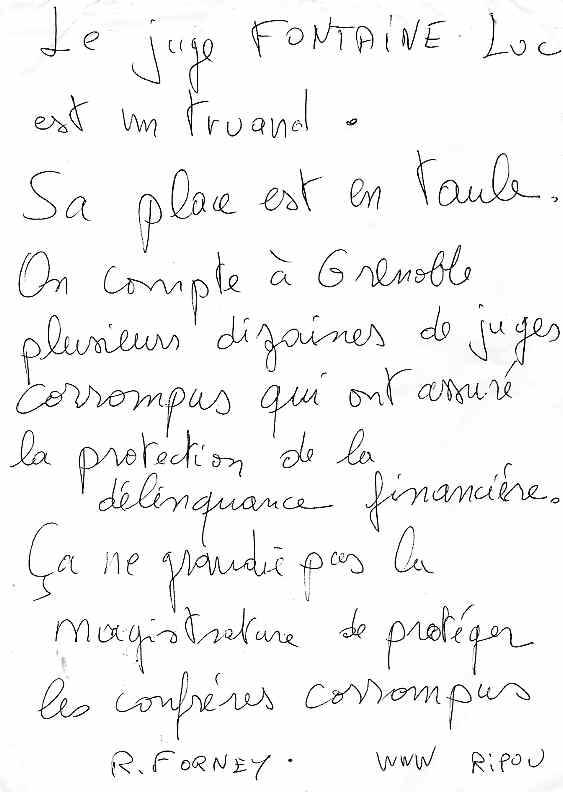 Le juge FONTAINE Luc
est un truand.
Sa place est en taule.
On compte à Grenoble
plusieurs dizaines de juges
corrompus qui ont assuré
la protection de la
délinquance financière.
Ça ne grandit pas la
magistrature de protéger
les confrères corrompus
R. FORNEY. WWW RIPOU